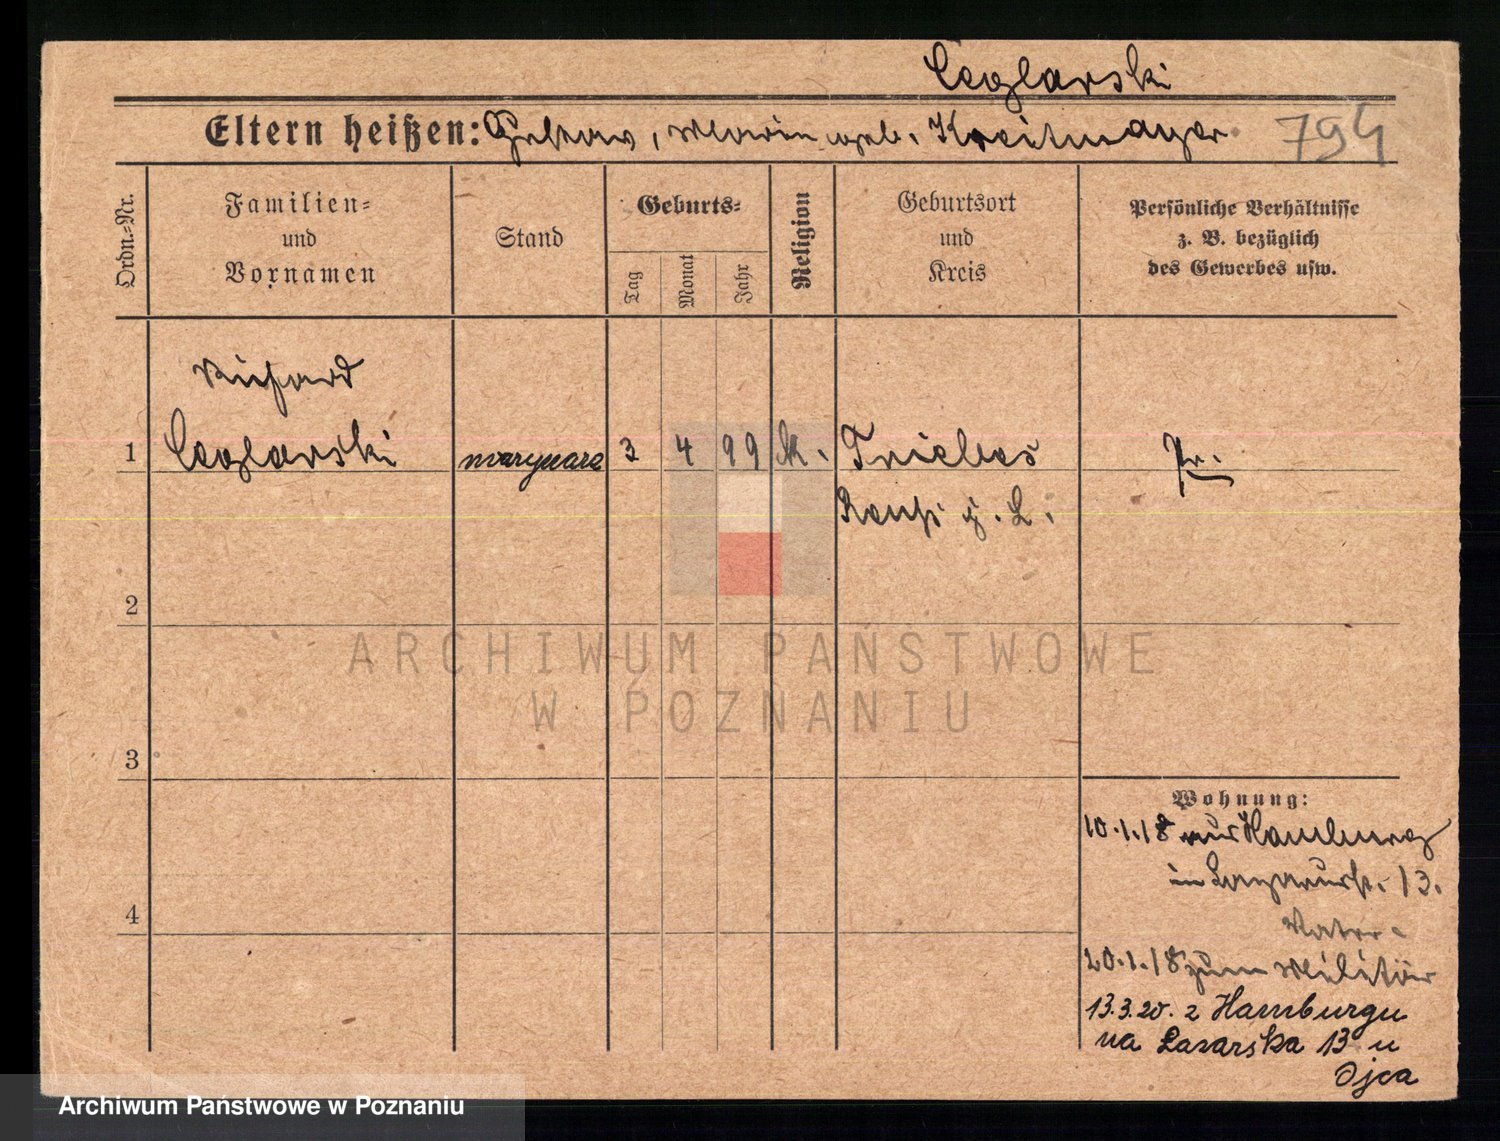 Ceglarski
Eltern heißen: Gustav, Maria geb. Kreitmayer 794
Ordn.-Nr.
Familien-
und
Vornamen
Stand
Geburts-
Tag
Monat
Jahr
Religion
Geburtsort
und
Kreis
Persönliche Verhältnisse
z. B. bezüglich
des Gewerbes usw.
Richard
1 Ceglarski marynarz 3 4 99 k. Triebes Pr.
Reuß j. L.
2
ARCHIWUM PAŃSTWOWE
W POZNANIU
3
Wohnung:
10.1.18 aus Hamburg
in Lazarusstr. 13.
4
Vater
20.1.18 zum Militär
13.3.20. z Hamburgu
na Łazarska 13 u
Ojca
Archiwum Państwowe w Poznaniu